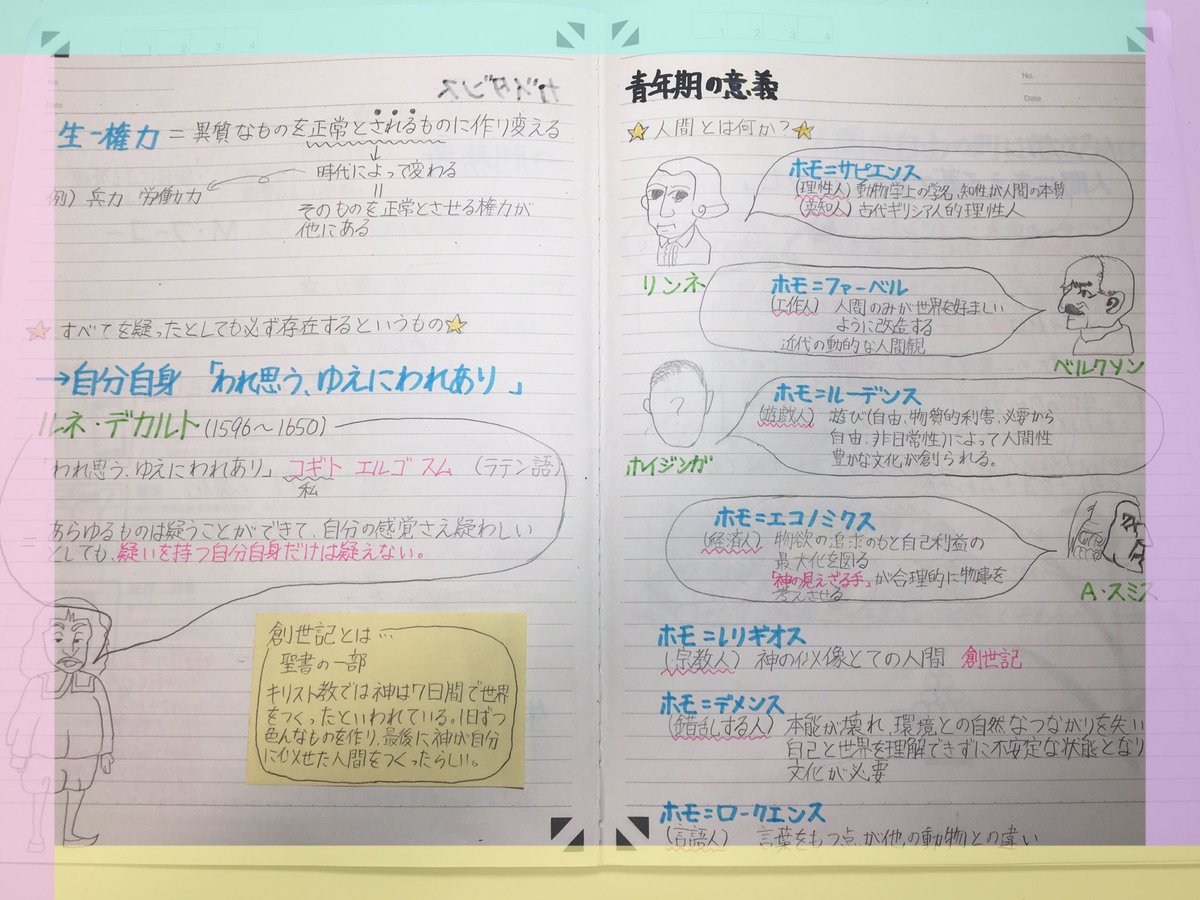 生-権力 = 異質なものを正常とされるものに作り変える
時代によって変わる
例) 兵力 労働力
=
そのものを正常とさせる権力が
他にある
すべてを疑ったとしても必ず存在するというもの
→自分自身 「われ思う、ゆえにわれあり」
ルネ・デカルト (1596〜1650)
「われ思う、ゆえにわれあり」 コギト エルゴ スム (ラテン語)
私
= あらゆるものは疑うことができて、自分の感覚さえ疑わしい
としても、疑いを持つ自分自身だけは疑えない。
創世記とは…
聖書の一部
キリスト教では神は7日間で世界
をつくったといわれている。1日ずつ
色んなものを作り、最後に神が自分
に似せた人間をつくったらしい。
ガイダンス
青年期の意義
No.
Date
人間とは何か?
ホモ=サピエンス
(理性人) 動物学上の学名、知性が人間の本質
(英知人) 古代ギリシア人的理性人
リンネ
ホモ=ファーベル
(工作人) 人間のみが世界を好ましい
ように改造する
近代の動的な人間観
ベルクソン
ホモ=ルーデンス
(遊戯人) 遊び(自由、物質的利害、必要から
自由、非日常性)によって人間性
豊かな文化が創られる。
?
ホイジンガ
ホモ=エコノミクス
(経済人) 物欲の追求のもと自己利益の
最大化を図る
「神の見えざる手」が合理的に物事を
考えさせる
A・スミス
ホモ=レリギオス
(宗教人) 神の似像としての人間 創世記
ホモ=デメンス
(錯乱する人) 本能が壊れ、環境との自然なつながりを失い
自己と世界を理解できずに不安定な状態となり
文化が必要
ホモ=ロークエンス
(言語人) 言葉をもつ点が他の動物との違い